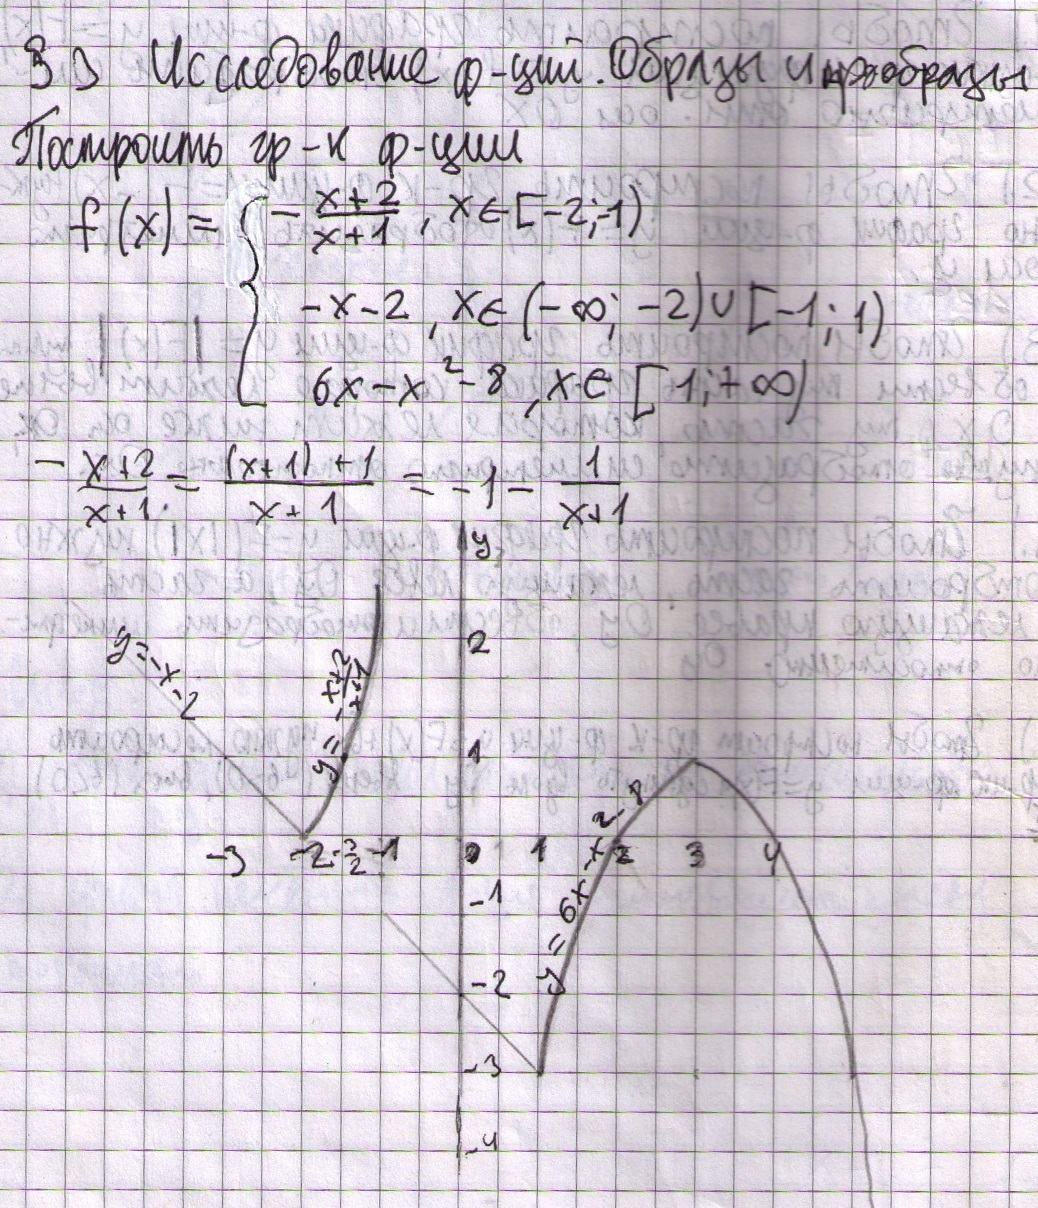 33 Исследование ф-ций. Образы и прообразы
Построить гр-к ф-ции
f(x) = { -\frac{x+2}{x+1}, x∈[-2;-1)
-x-2, x∈(-∞; -2)∪[-1; 1)
6x-x²-8, x∈[1;+∞)
-\frac{x+2}{x+1} = \frac{(x+1)+1}{x+1} = -1 - \frac{1}{x+1}
y
2
y=-x-2
y=-\frac{x+2}{x+1}
1
y=6x-x²-8
-3 -2 -\frac{3}{2} -1 0 1 2 3 4
-1
-2
-3
-4